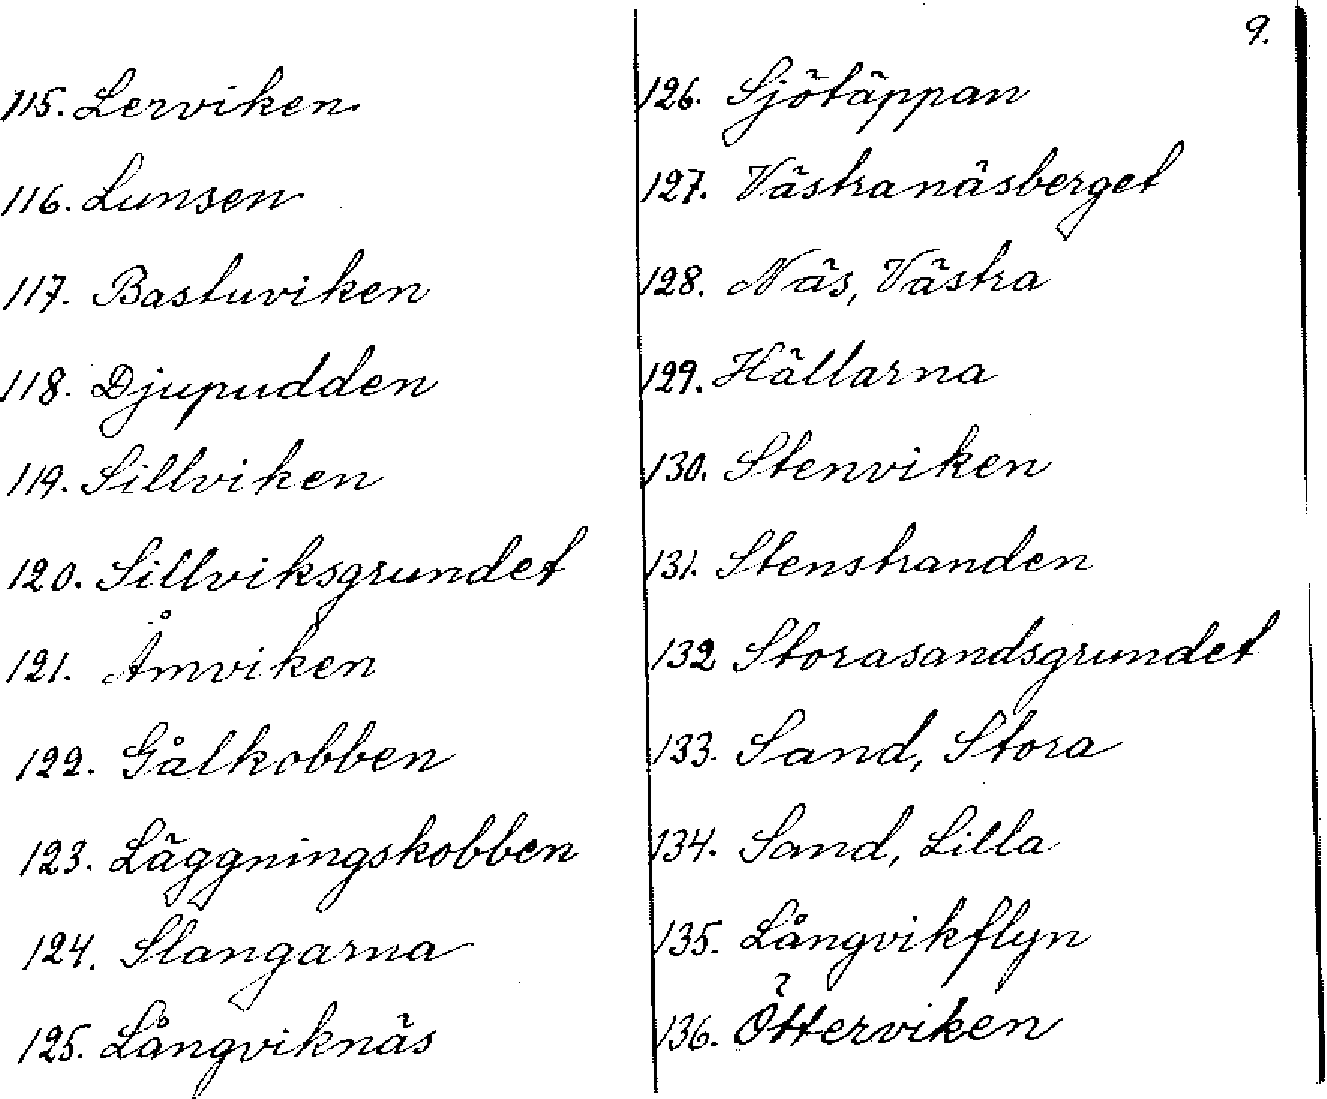 9.
115. Lerviken
116. Lunsen
117. Bastuviken
118. Djupudden
119. Sillviken
120. Sillviksgrundet
121. Åmviken
122. Gålkobben
123. Läggningskobben
124. Slangarna
125. Långviknäs
126. Sjötäppan
127. Västranäsberget
128. Näs, Västra
129. Hällarna
130. Stenviken
131. Stenstranden
132 Storasandsgrundet
133. Sand, Stora
134. Sand, Lilla
135. Långvikflyn
136. Ötterviken